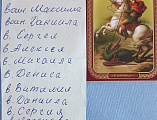 воин Максима
воин Даниила
в. Сергея
в. Алексея
в. Михаила
в. Дениса
в. Виталия
в. Даниила
в. Сергия